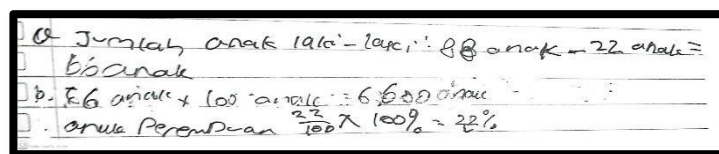 a Jumlah anak laki-laki: 88 anak - 22 anak =
66 anak
b. 66 anak x 100 anak = 6.600 anak
. anak Perempuan 22/100 x 100% = 22%